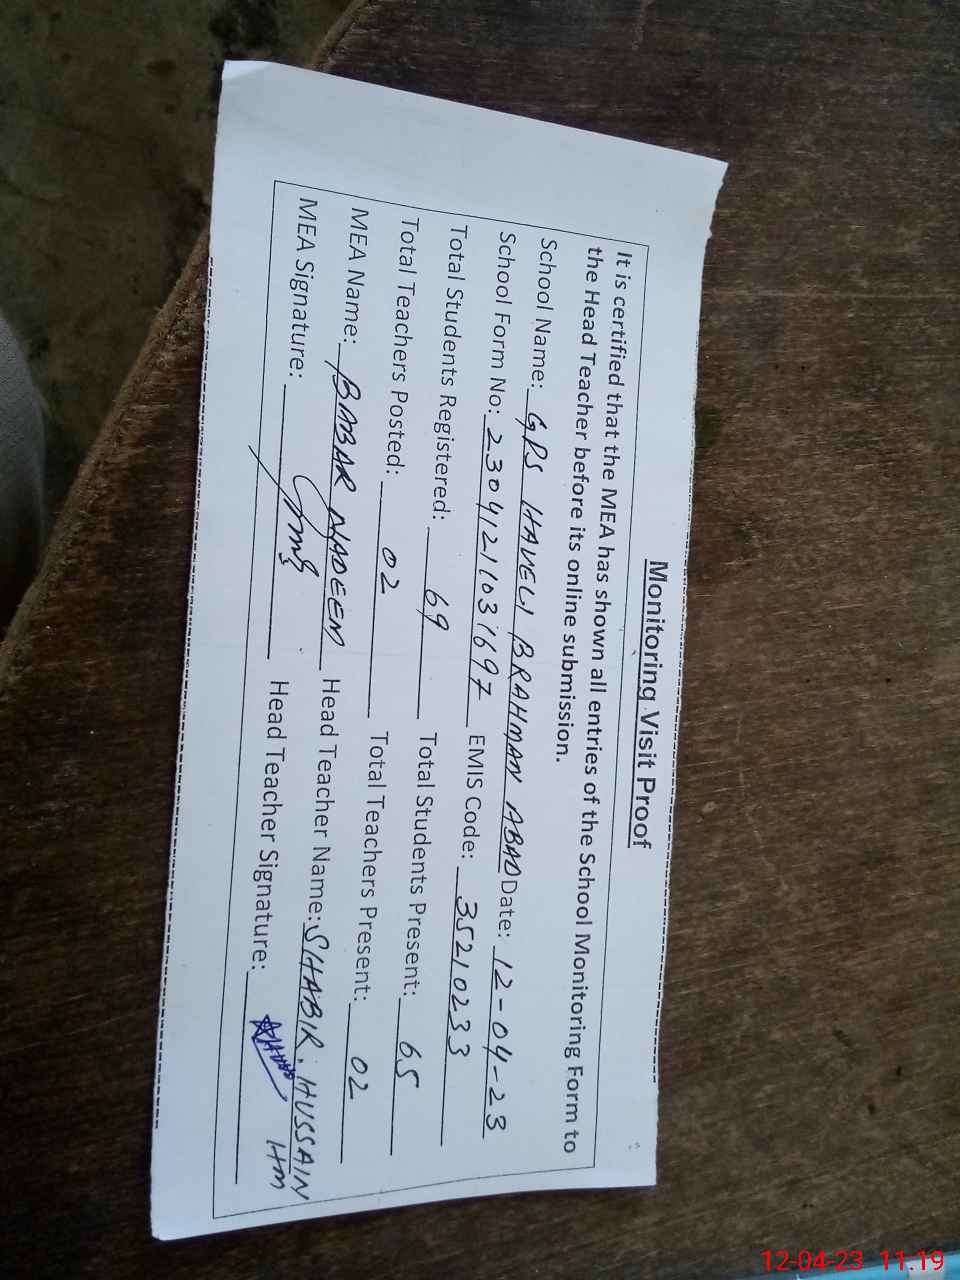 Monitoring Visit Proof
It is certified that the MEA has shown all entries of the School Monitoring Form to
the Head Teacher before its online submission.
School Name: GPS HAVELI BRAHMAN ABAD Date: 12-04-23
School Form No: 23041211031697 EMIS Code: 35210233
Total Students Registered: 69 Total Students Present: 65
Total Teachers Posted: 02 Total Teachers Present: 02
MEA Name: BABAR NADEEM Head Teacher Name: SHABIR. HUSSAIN
MEA Signature: Head Teacher Signature: HM
12-04-23 11.19